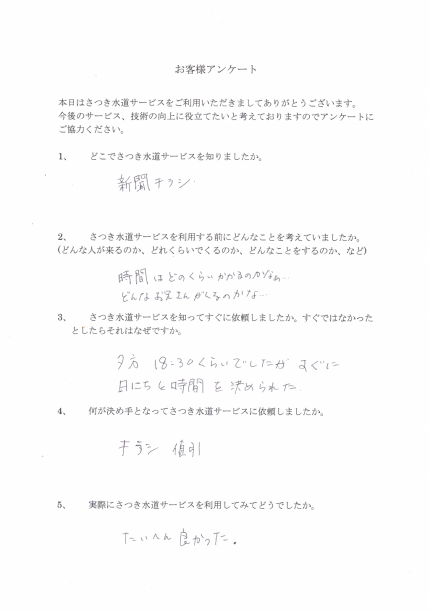 お客様アンケート
本日はさつき水道サービスをご利用いただきましてありがとうございます。
今後のサービス、技術の向上に役立てたいと考えておりますのでアンケートに
ご協力ください。
1、 どこでさつき水道サービスを知りましたか。
新聞チラシ.
2、 さつき水道サービスを利用する前にどんなことを考えていましたか。
(どんな人が来るのか、どれくらいでくるのか、どんなことをするのか、など)
時間はどのくらいかかるのかなぁ…
どんなお兄さんがくるのかな…
3、 さつき水道サービスを知ってすぐに依頼しましたか。すぐではなかった
としたらそれはなぜですか。
夕方 18:30くらいでしたが すぐに
日にちと時間を決められた.
4、 何が決め手となってさつき水道サービスに依頼しましたか。
チラシ 値引
5、 実際にさつき水道サービスを利用してみてどうでしたか。
たいへん良かった。